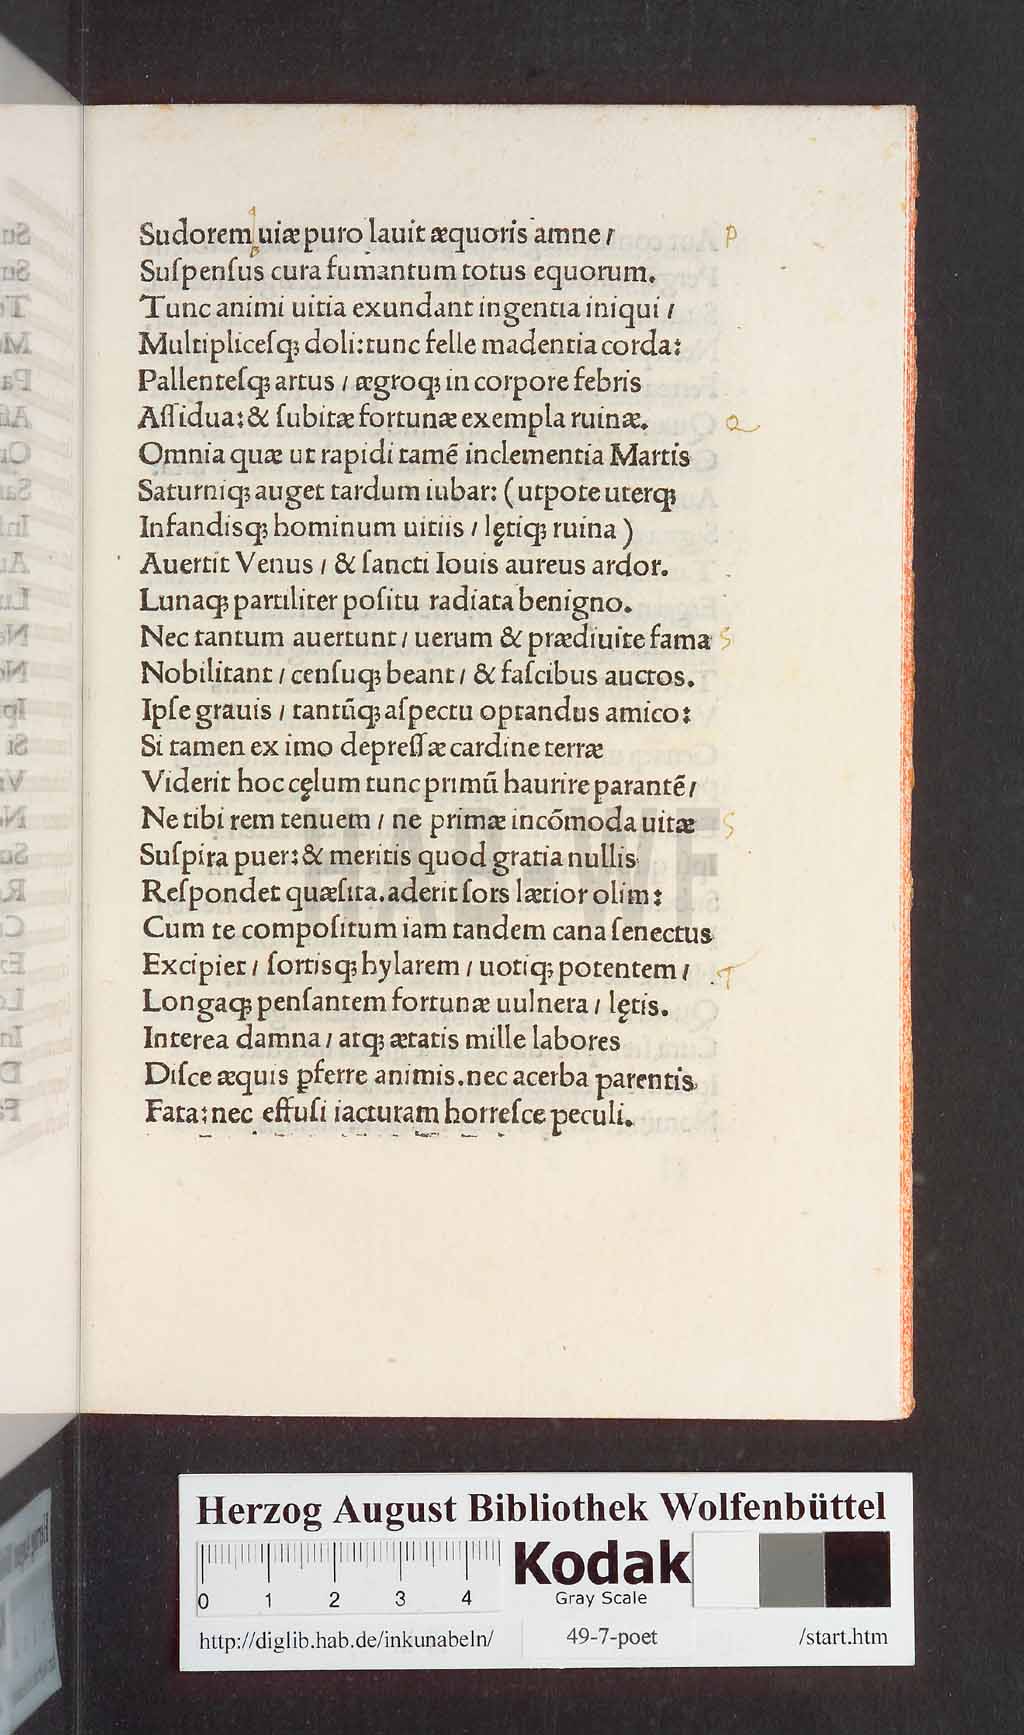 Sudorem uiæ puro lauit æquoris amne / p
Suſpenſus cura fumantum totus equorum.
Tunc animi uitia exundant ingentia iniqui /
Multiplicesq; doli: tunc felle madentia corda:
Pallenteſq; artus / ægroq; in corpore febris
Aſſidua: & ſubitæ fortunæ exempla ruinæ. Q
Omnia quæ ut rapidi tamē inclementia Martis
Saturniq; auget tardum iubar: (utpote uterq;
Infandisq; hominum uitiis / lętiq; ruina)
Auertit Venus / & ſancti Iouis aureus ardor.
Lunaq; partiliter poſitu radiata benigno.
Nec tantum auertunt / uerum & prædiuite fama S
Nobilitant / cenſuq; beant / & faſcibus auctos.
Ipſe grauis / tantūq; aſpectu optandus amico:
Si tamen ex imo depreſſæ cardine terræ
Viderit hoc cęlum tunc primū haurire parantē /
Ne tibi rem tenuem / ne primæ incōmoda uitæ S
Suſpira puer: & meritis quod gratia nullis
Reſpondet quæſita. aderit ſors lætior olim:
Cum te compoſitum iam tandem cana ſenectus
Excipiet / ſortisq; hylarem / uotiq; potentem / T
Longaq; penſantem fortunæ uulnera / lętis.
Interea damna / atq; ætatis mille labores
Diſce æquis ꝑferre animis. nec acerba parentis
Fata: nec effuſi iacturam horreſce peculi.
HAB WF
Herzog August Bibliothek Wolfenbüttel
0 1 2 3 4
Kodak
Gray Scale
http://diglib.hab.de/inkunabeln/ 49-7-poet /start.htm